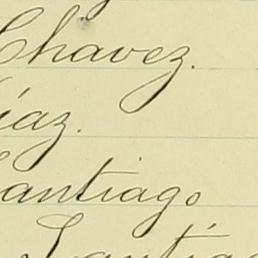 Chavez.
iaz.
Santiago
Santia